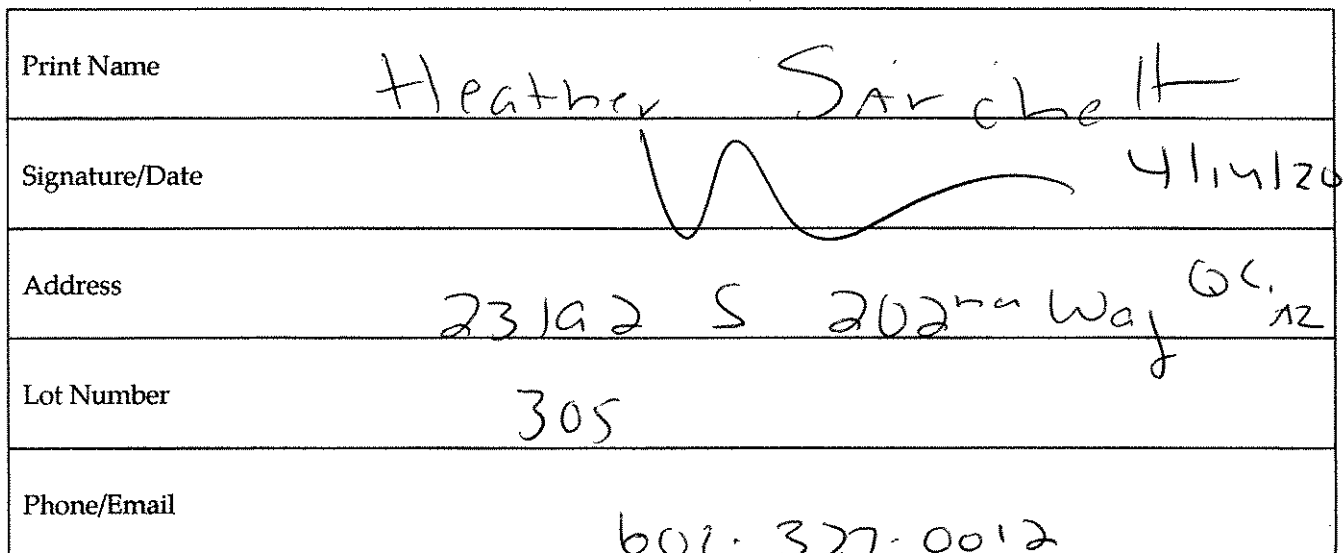 Print Name Heather Sairchelt
Signature/Date 4/14/20
Address 23192 S 202nd Way QC, AZ
Lot Number 305
Phone/Email 602.327.0012